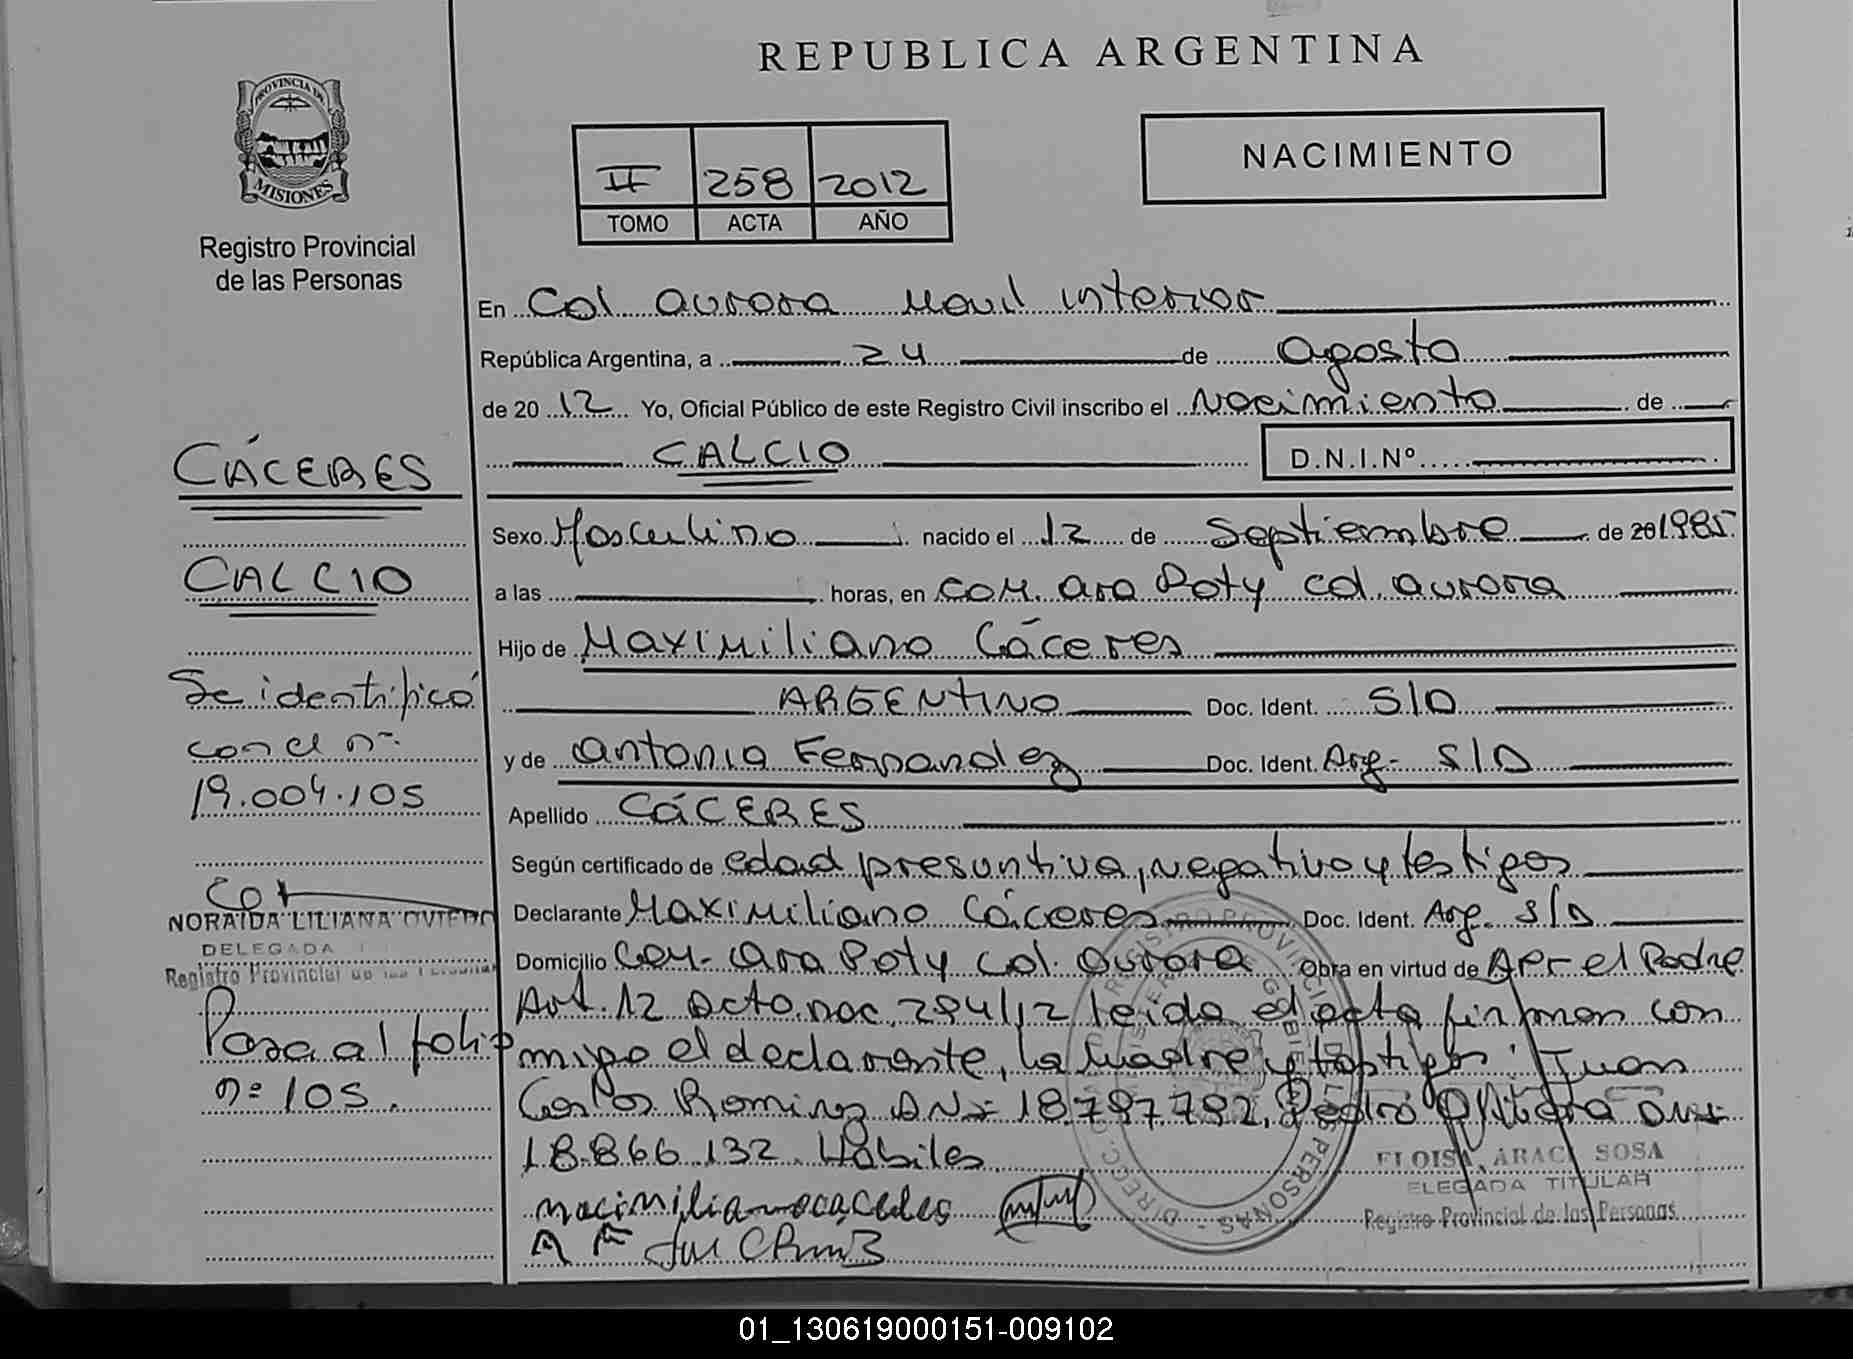 REPUBLICA ARGENTINA
PROVINCIA DE
MISIONES
Registro Provincial
de las Personas
II 258 2012
TOMO ACTA AÑO
NACIMIENTO
En Col aurora Movil interior
República Argentina, a 24 de agosto
de 2012 Yo, Oficial Público de este Registro Civil inscribo el Nacimiento de
CALCIO D.N.I.Nº
Sexo Masculino nacido el 12 de Septiembre de 20 1985
a las horas, en COM. ara Poty col. aurora
Hijo de Maximiliano Cáceres
ARGENTINO Doc. Ident. S/D
y de antonia Fernandez Doc. Ident. Arg- S/D
Apellido CÁCERES
Según certificado de edad presuntiva, negativo y testigos
Declarante Maximiliano Cáceres Doc. Ident. Arg. S/D
Domicilio Com- ara Poty Col. aurora Obra en virtud de Apr el Padre
Art. 12 acto. nac. 294/12 leída el acta firman con
migo el declarante, la Madre y testigos: Juan
Carlos Ramirez DNI 18.797.792, Pedro
18.866.132. Hábiles
CÁCERES
CALCIO
Se identificó
con el nº
19.004.105
NORAIDA LILIANA OVIEDO
DELEGADA
Registro Provincial de las Personas
Pasa al folio
nº 105.
ELOISA ARACI SOSA
DELEGADA TITULAR
Registro Provincial de las Personas
01_130619000151-009102